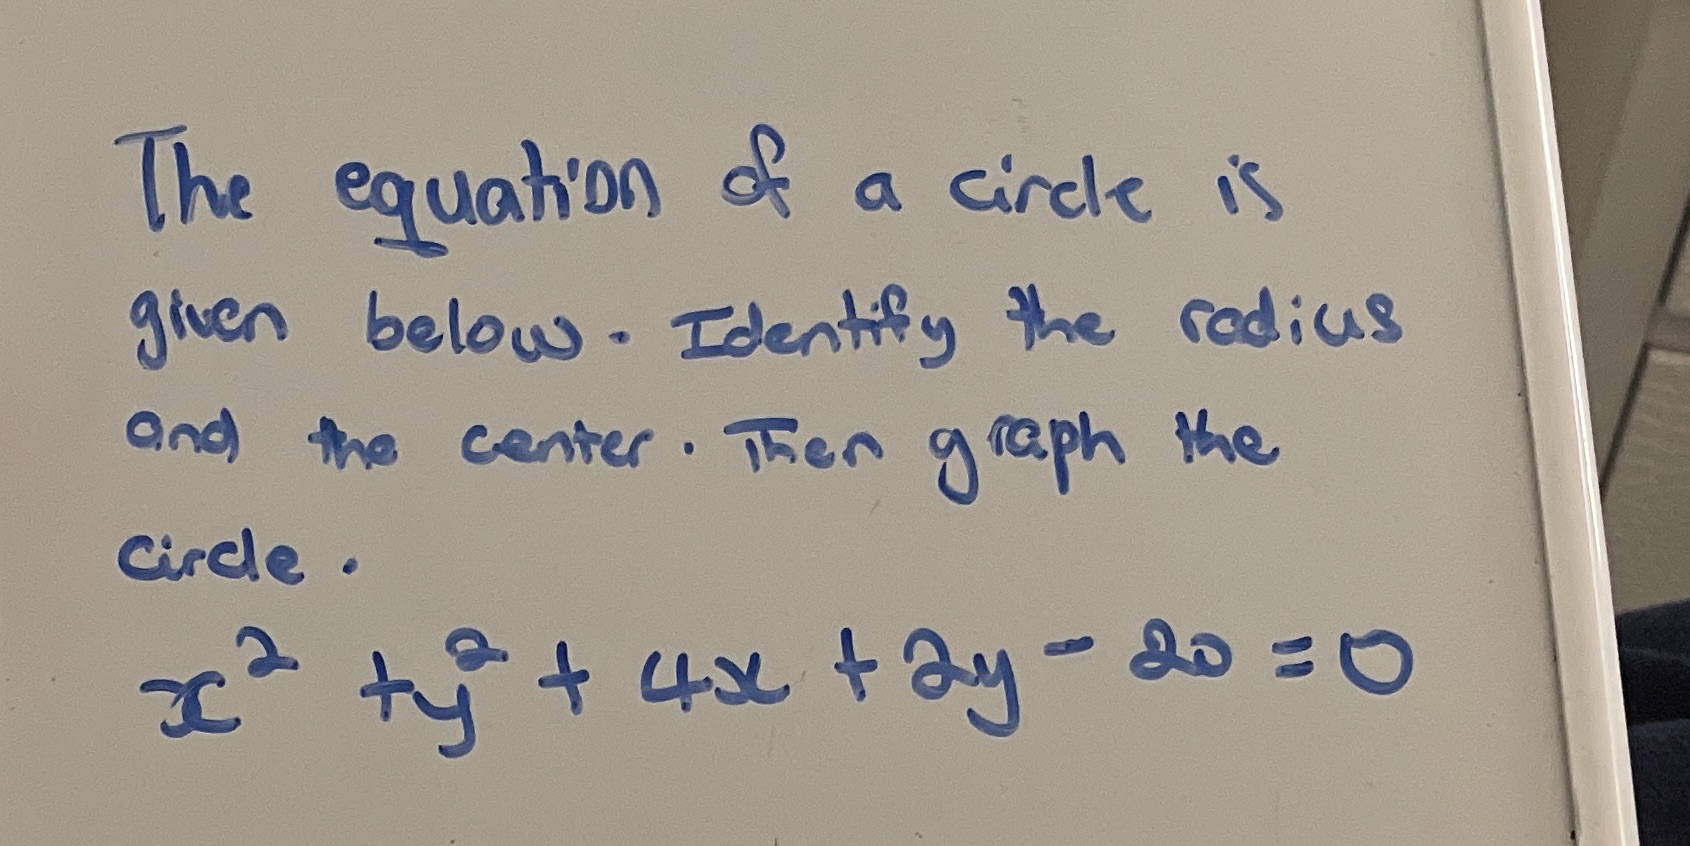 The equation of a circle is
given below. Identify the radius
and the center. Then graph the
circle.
x² + y² + 4x + 2y - 20 = 0